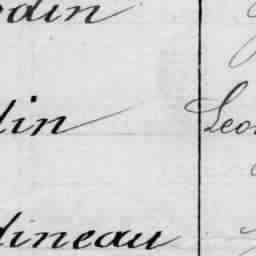 din
din Leo
dineau